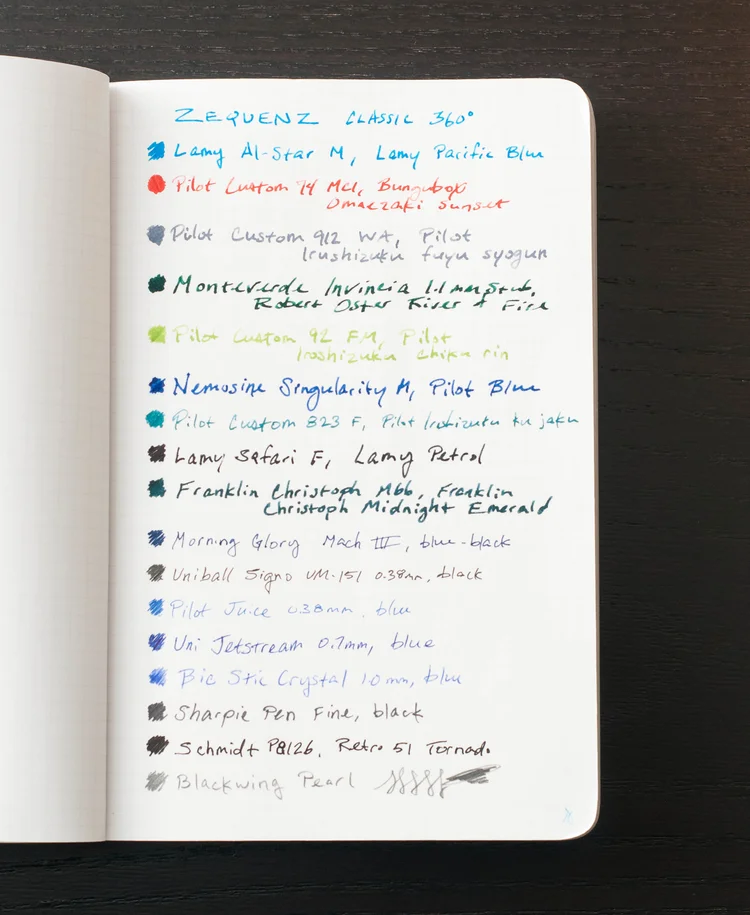 ZEQUENZ CLASSIC 360°
Lamy Al-Star M, Lamy Pacific Blue
Pilot Custom 74 MCI, Bungubox
Omaezaki sunset
Pilot Custom 912 WA, Pilot
Irushizuku fuyu syogun
Monteverde Invincia 1.1 mm Stub,
Robert Oster River + Fire
Pilot Custom 92 FM, Pilot
Iroshizuku chiku rin
Nemosine Singularity M, Pilot Blue
Pilot Custom 823 F, Pilot Iroshizuku ku jaku
Lamy Safari F, Lamy Petrol
Franklin Christoph M66, Franklin
Christoph Midnight Emerald
Morning Glory Mach III, blue-black
Uniball Signo UM-151 0.38mm, black
Pilot Juice 0.38mm, blue
Uni Jetstream 0.7mm, blue
Bic Stic Crystal 1.0mm, blu
Sharpie Pen Fine, black
Schmidt P8126, Retro 51 Tornado
Blackwing Pearl